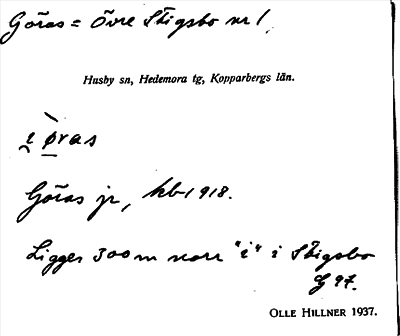 Göras = Övre Stigsbo nr 1.
Husby sn, Hedemora tg, Kopparbergs län.
i øras
Göras jr, hb 1918.
Ligger 300 m norr "i" i Stigsbo
G 97.
OLLE HILLNER 1937.